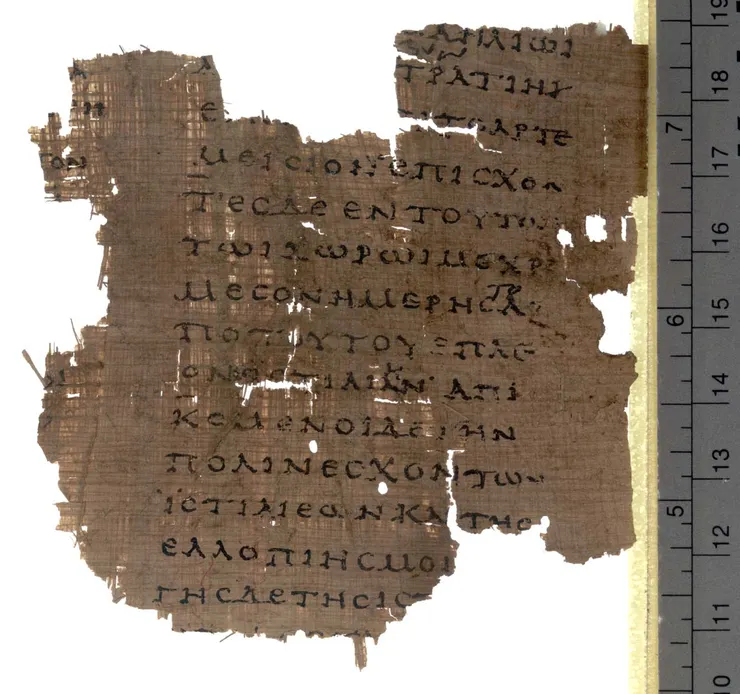 ΗΛΙΩΙ
ΤΡΑΤΙΗΙ
ΤΟΑΡΤΕ
ΓΟΝ
ΜΕΙϹΙΟΝ ΕΠΙϹΧΟΝ
ΤΕϹΔΕ ΕΝ ΤΟΥΤΩ
ΤΩΙΧΩΡΩΙΜΕΧΡ
ΜΕϹΟΝΗΜΕΡΗϹΑ
ΠΟΤΟΥΤΟΥ ΕΠΛΕ
ΟΝΕϹΤΙΑΙΗΝ ΑΠΙ
ΚΟΜΕΝΟΙΔΕΤΗΝ
ΠΟΛΙΝΕϹΧΟΝΤΩΝ
ΙϹΤΙΑΙΕΩΝΚΑΙΤΗϹ
ΕΛΛΟΠΙΗϹΜΟΙ
ΓΗϹΔΕΤΗϹΙϹ
19
18
7
17
16
6
15
14
13
5
12
11
10